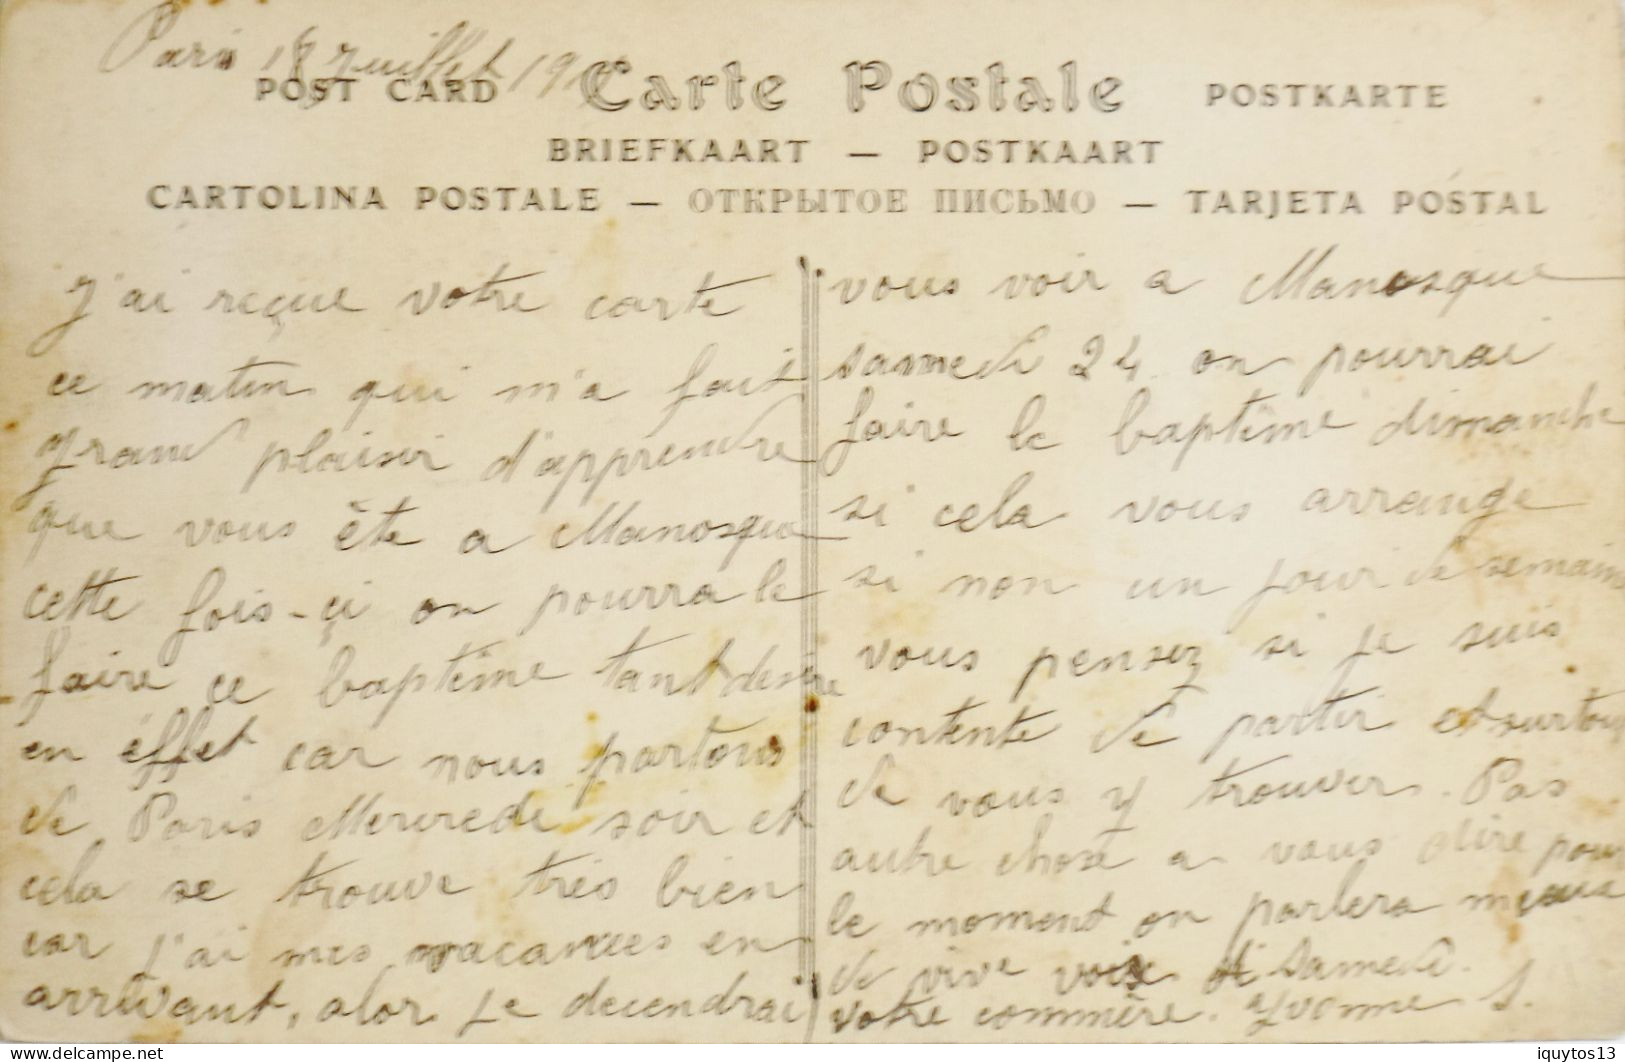 Paris 18 Juillet 19
POST CARD Carte Postale POSTKARTE
BRIEFKAART — POSTKAART
CARTOLINA POSTALE — ОТКРЫТОЕ ПИСЬМО — TARJETA POSTAL
J'ai reçue votre carte
ce matin qui m'a fait
grand plaisir d'apprendre
que vous ête a Manosque
cette fois-çi on pourra le
faire ce baptême tant
en éffet car nous partons
de Paris Mercredi soir et
cela se trouve très bien
car j'ai mes vacances en
arrivant, alor je decendrai
vous voir a Manosque
samedi 24 on pourrai
faire le baptême dimanche
si cela vous arrange
si non un jour de semaine
vous pensez si je suis
contente de partir et surtout
de vous y trouver. Pas
autre chose a vous dire pour
le moment on parlera mieux
de vive voix Samedi.
votre commère. Yvonne S.
iquytos13